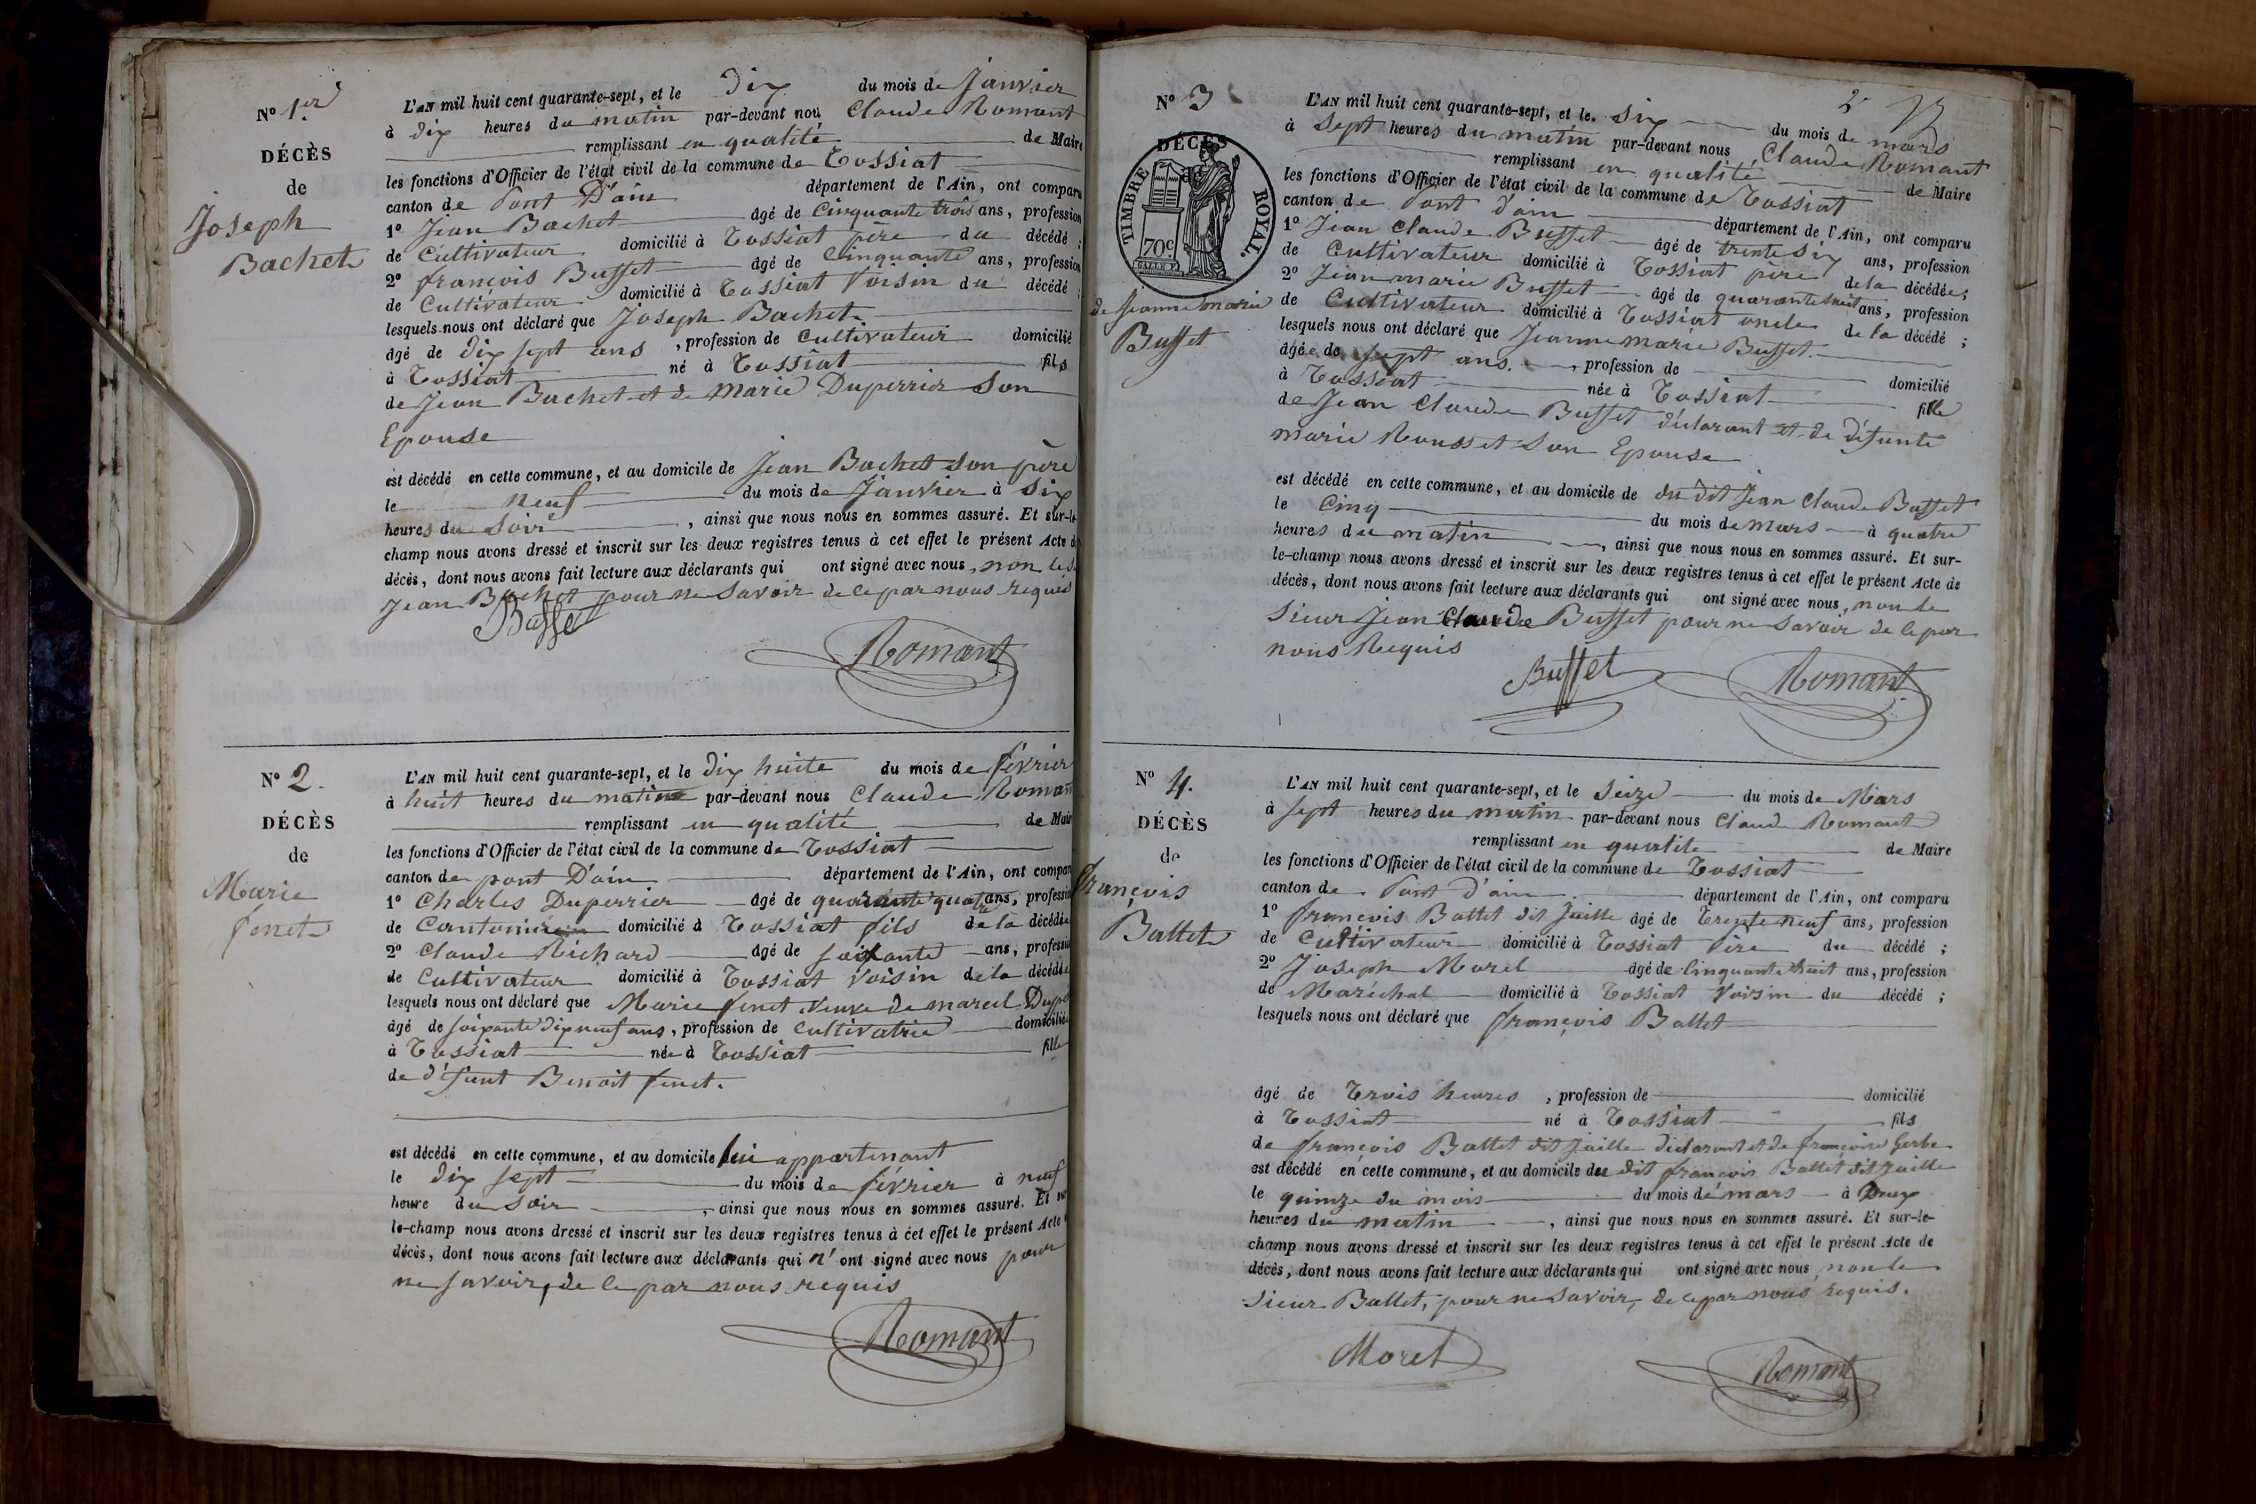 N° 1.er
DÉCÈS
de
Joseph
Bachet
L'AN mil huit cent quarante-sept, et le Dix du mois de Janvier
à dix heures du matin par-devant nou Claude Romant
remplissant en qualité de Maire
les fonctions d'Officier de l'état civil de la commune de Tossiat
canton de Pont D'ain département de l'Ain, ont comparu
1° Jean Bachet âgé de Cinquante trois ans, profession
de Cultivateur domicilié à Tossiat père du décédé ;
2° françois Buffet âgé de Cinquante ans, profession
de Cultivateur domicilié à Tossiat Voisin du décédé ;
lesquels nous ont déclaré que Joseph Bachet
âgé de dix sept ans , profession de Cultivateur domicilié
à Tossiat né à Tossiat fils
de Jean Bachet et de Marie Duperrier Son
Epouse
est décédé en cette commune, et au domicile de Jean Bachet Son père
le neuf du mois de Janvier à Six
heures du Soir , ainsi que nous nous en sommes assuré. Et sur-le-
champ nous avons dressé et inscrit sur les deux registres tenus à cet effet le présent Acte de
décès, dont nous avons fait lecture aux déclarants qui ont signé avec nous, non le S
Jean Bachet pour ne Savoir de ce par nous requis
Buffet
Romant
N° 2.
DÉCÈS
de
Marie
fenet
L'AN mil huit cent quarante-sept, et le dix huite du mois de février
à huit heures du matin par-devant nous Claude Romant
remplissant en qualité de Mair
les fonctions d'Officier de l'état civil de la commune de Tossiat
canton de pont D'ain département de l'Ain, ont compar
1° Charles Duperrier âgé de quarante quatre ans, professi
de Cantonnier domicilié à Tossiat fils de la décédée
2° Claude Richard âgé de soixante ans, professi
de Cultivateur domicilié à Tossiat Voisin de la décédée
lesquels nous ont déclaré que Marie fenet Veuve de marcel Dup
âgé de soixante dix neuf ans, profession de Cultivatrice domiciliée
à Tossiat née à Tossiat fille
de défunt Benoit fenet.
est décédé en cette commune, et au domicile lui appartenant
le dix sept du mois de février à neuf
heure du Soir , ainsi que nous nous en sommes assuré. Et sur
le-champ nous avons dressé et inscrit sur les deux registres tenus à cet effet le présent Acte
décès, dont nous avons fait lecture aux déclarants qui n' ont signé avec nous pour
ne savoir, de ce par nous requis
Romant
N° 3
DÉCÈS
TIMBRE ROYAL.
70c.
de Jeanne marie
Buffet
L'AN mil huit cent quarante-sept, et le Six du mois de mars
à Sept heures du matin par-devant nous Claude Romant
remplissant en qualité de Maire
les fonctions d'Officier de l'état civil de la commune de Tossiat
canton de Pont d'ain département de l'Ain, ont comparu
1° Jean Claude Buffet âgé de trente Six ans, profession
de Cultivateur domicilié à Tossiat père de la décédée ;
2° Jean marie Buffet âgé de quarante huit ans, profession
de Cultivateur domicilié à Tossiat oncle de la décédé ;
lesquels nous ont déclaré que Jeanne marie Buffet
âgée de sept ans. , profession de domicilié
à Tossiat née à Tossiat fille
de Jean Claude Buffet déclarant et de défunte
marie Rousset Son Epouse
est décédé en cette commune, et au domicile de du dit Jean Claude Buffet
le Cinq du mois de mars à quatre
heures du matin , ainsi que nous nous en sommes assuré. Et sur-
le-champ nous avons dressé et inscrit sur les deux registres tenus à cet effet le présent Acte de
décès, dont nous avons fait lecture aux déclarants qui ont signé avec nous, non le
Sieur Jean Claude Buffet pour ne Savoir de ce par
nous Requis
Buffet
Romant
N° 4.
DÉCÈS
de
françois
Ballet
L'AN mil huit cent quarante-sept, et le Seize du mois de Mars
à sept heures du matin par-devant nous Claude Romant
remplissant en qualité de Maire
les fonctions d'Officier de l'état civil de la commune de Tossiat
canton de Pont d'ain département de l'Ain, ont comparu
1° françois Ballet dit Juille âgé de Trente neuf ans, profession
de Cultivateur domicilié à Tossiat Père du décédé ;
2° Joseph Morel âgé de Cinquante huit ans, profession
de Maréchal domicilié à Tossiat Voisin du décédé ;
lesquels nous ont déclaré que françois Ballet
âgé de Trois heures , profession de domicilié
à Tossiat né à Tossiat fils
de françois Ballet dit Juille déclarant et de françoise Gerbe
est décédé en cette commune, et au domicile du dit françois Ballet dit Juille
le quinze du mois du mois de mars à Deux
heures du matin , ainsi que nous nous en sommes assuré. Et sur-le-
champ nous avons dressé et inscrit sur les deux registres tenus à cet effet le présent Acte de
décès, dont nous avons fait lecture aux déclarants qui ont signé avec nous, non le
Sieur Ballet, pour ne Savoir, de ce par nous requis.
Morel
Romant